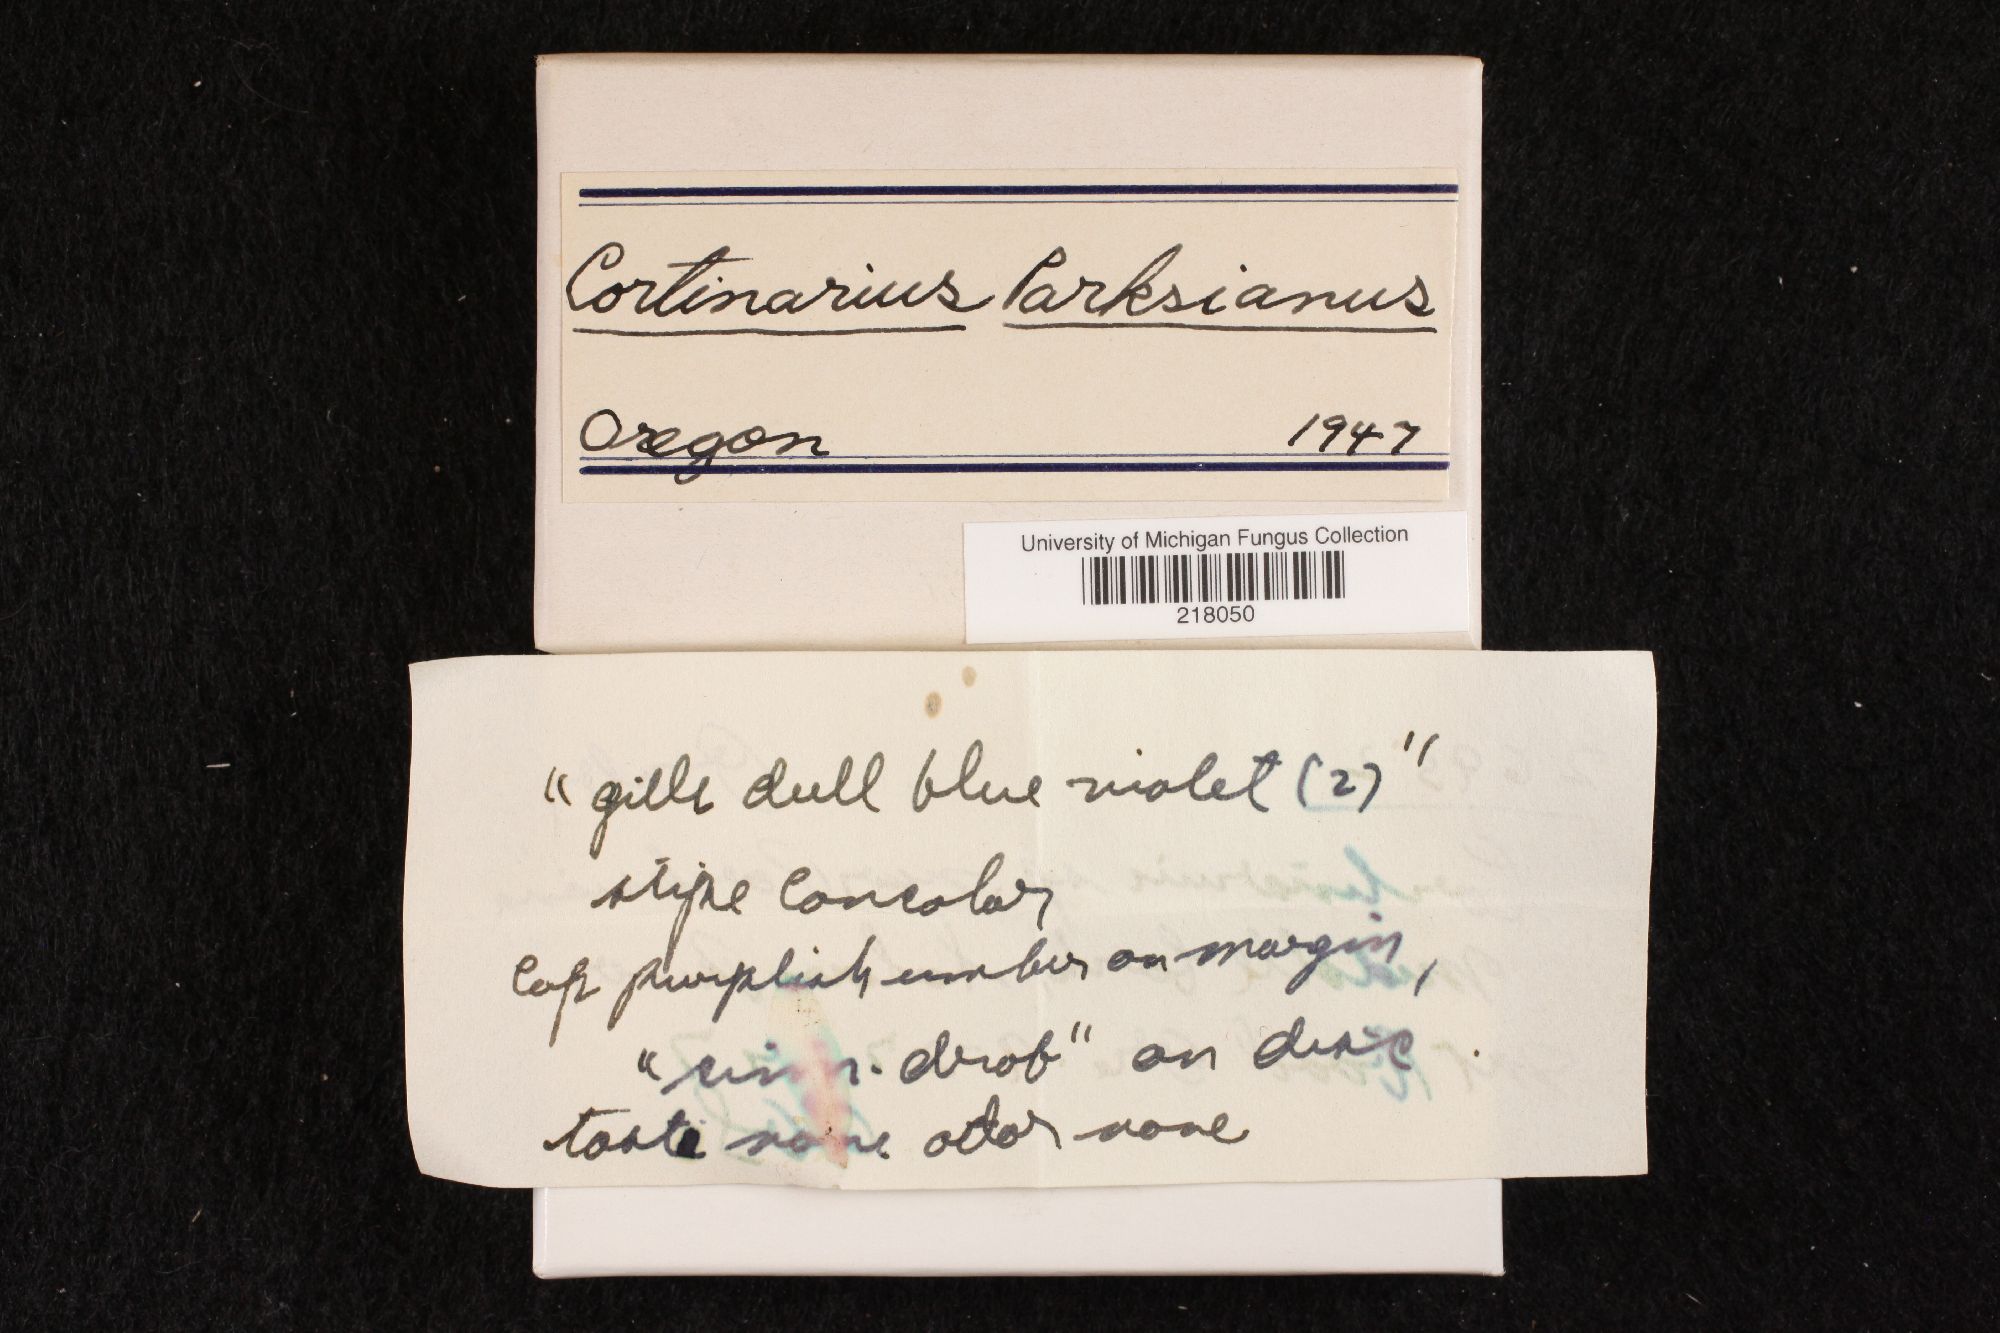 Cortinarius Parksianus
Oregon 1947
University of Michigan Fungus Collection
218050
"gills dull blue violet (2)"
stipe concolor
Cap purplish umber on margin,
"cinn. drab" on disc.
taste none odor none